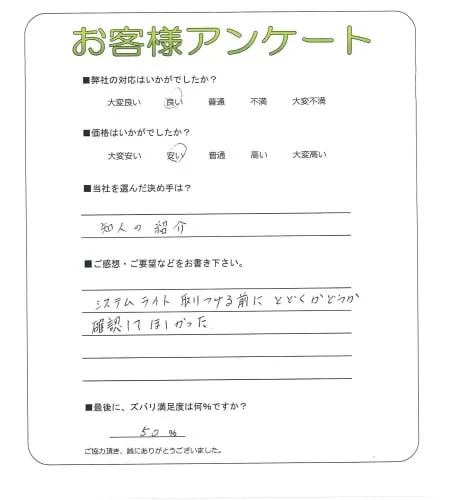 お客様アンケート
■弊社の対応はいかがでしたか？
大変良い 良い 普通 不満 大変不満
■価格はいかがでしたか？
大変安い 安い 普通 高い 大変高い
■当社を選んだ決め手は？
知人の紹介
■ご感想・ご要望などをお書き下さい。
システムライト取りつける前にとどくかどうか
確認してほしかった
■最後に、ズバリ満足度は何％ですか？
50 %
ご協力頂き、誠にありがとうございました。